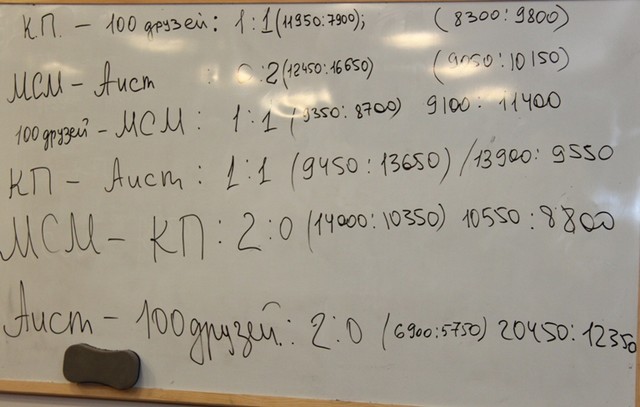 КП. - 100 друзей: 1:1 (11950:7900); (8300:9800)
МСМ - Аист :2 (12450:16650) (9050:10150)
100 друзей - МСМ: 1:1 (9350:8700) 9100:11400
КП - Аист: 1:1 (9450:13650) / 13900:9550
МСМ - КП: 2:0 (14000:10350) 10550:8800
Аист - 100 друзей: 2:0 (6900:5750) 20450:12350